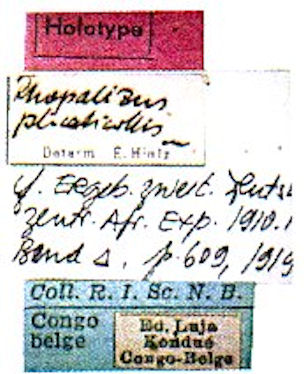 Holotype
Rhopalizus
plicaticollis
Determ E. Hintz
cf. Ergeb. zweit. Deuts
Zentr. Afr. Exp. 1910.1
Band Δ, p. 609, 1919
Coll. R. I. Sc. N. B.
Congo
belge
Ed. Luja
Kondué
Congo-Belge